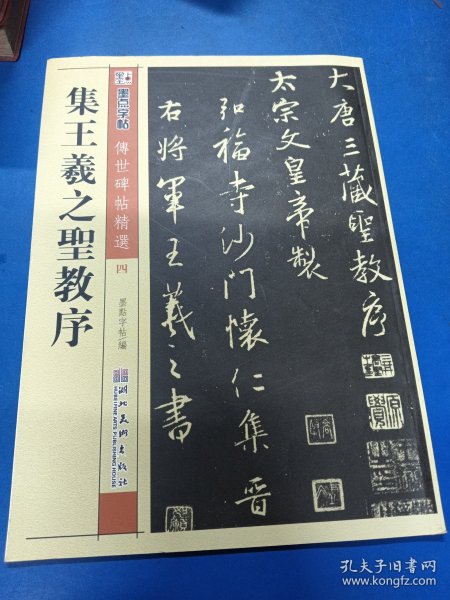 集王羲之聖教序
墨点字帖
傳世碑帖精選
四
墨點字帖 編
湖北美术出版社
HUBEI FINE ARTS PUBLISHING HOUSE
大唐三藏聖教序
太宗文皇帝製
弘福寺沙門懷仁集晉
右將軍王羲之書
孔夫子旧书网
www.kongfz.com